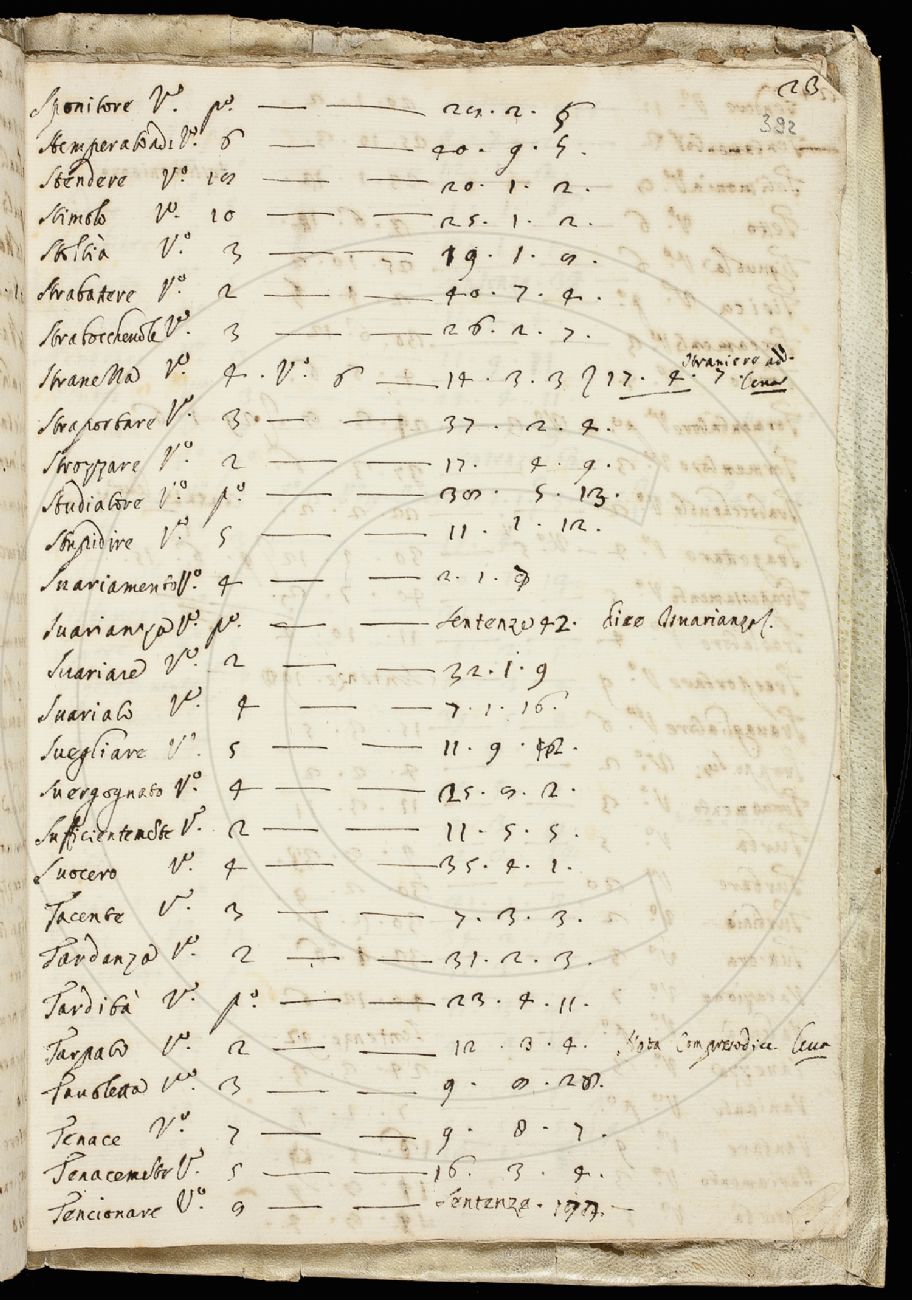 23
392
Sponitore Vº. pº. — — 28. 2. 6
Stemperatoadi Vº. 6 — — 40. 9. 5.
Stendere Vº. 18 — — 20. 1. 2.
Stimolo Vº. 10 — — 25. 1. 2.
Vº. 3 — — 19. 1. 8.
Strabattere Vº. 2 — — 40. 7. 4.
Strabocchevole Vº. 3 — — 26. 2. 7.
Stranella Vº. 4. Vº. 6 — 14. 3. 3 } 17. 4. 7 Straniero ad. leva
Straportare Vº. 3 — — 37. 2. 4.
Strozzare Vº. 2 — — 17. 4. 9.
Studiatore Vº. pº. — — 38. 5. 13.
Stupidire Vº. 5 — — 11. 1. 12.
Suariamento Vº. 4 — — 2. 1. 7
Suarianza Vº. pº. — — Sentenze 42. dice
Suariare Vº. 2 — — 32. 1. 9
Suariato Vº. 4 — — 7. 1. 16.
Suegliare Vº. 5 — — 11. 9. 12.
Suergognato Vº. 4 — — 25. 8. 2.
Sufficientemte Vº. 2 — — 11. 5. 5.
Suocero Vº. 4 — — 35. 4. 1.
Tacente Vº. 3 — — 7. 3. 3.
Tardanza Vº. 2 — — 31. 2. 3.
Tardità Vº. pº. — — 23. 4. 11.
Tarpato Vº. 2 — — 12. 3. 4. Nota leva
Tauoletta Vº. 3 — — 9. 8. 28.
Tenace Vº. 7 — — 9. 8. 7.
Tenacemte Vº. 5 — — 16. 3. 4.
Tencionare Vº. 9 — — Sentenze.